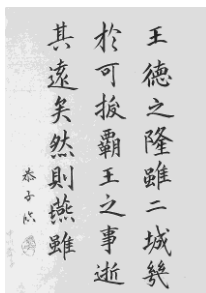 王德之隆雖二城幾
於可拔霸王之事逝
其遠矣然則燕雖